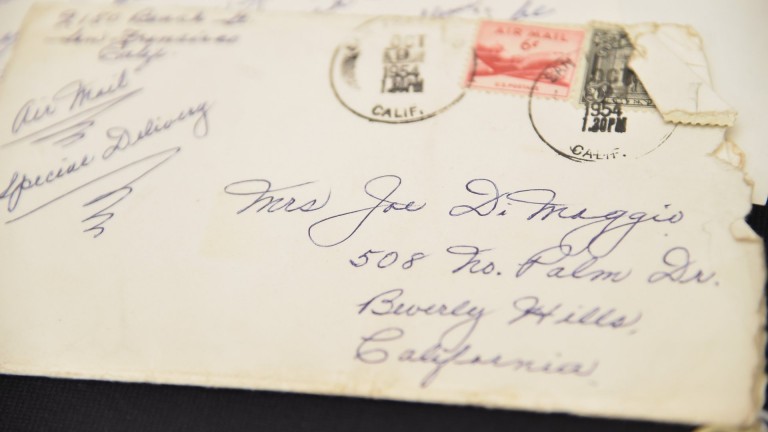 2150 Beach St
San Francisco
Calif
Air Mail
Special Delivery
OCT
1954
1:30PM
CALIF.
AIR MAIL
6¢
U.S. POSTAGE
SAN
OCT
1954
1:30PM
CALIF.
Mrs Joe DiMaggio
508 No. Palm Dr.
Beverly Hills,
California